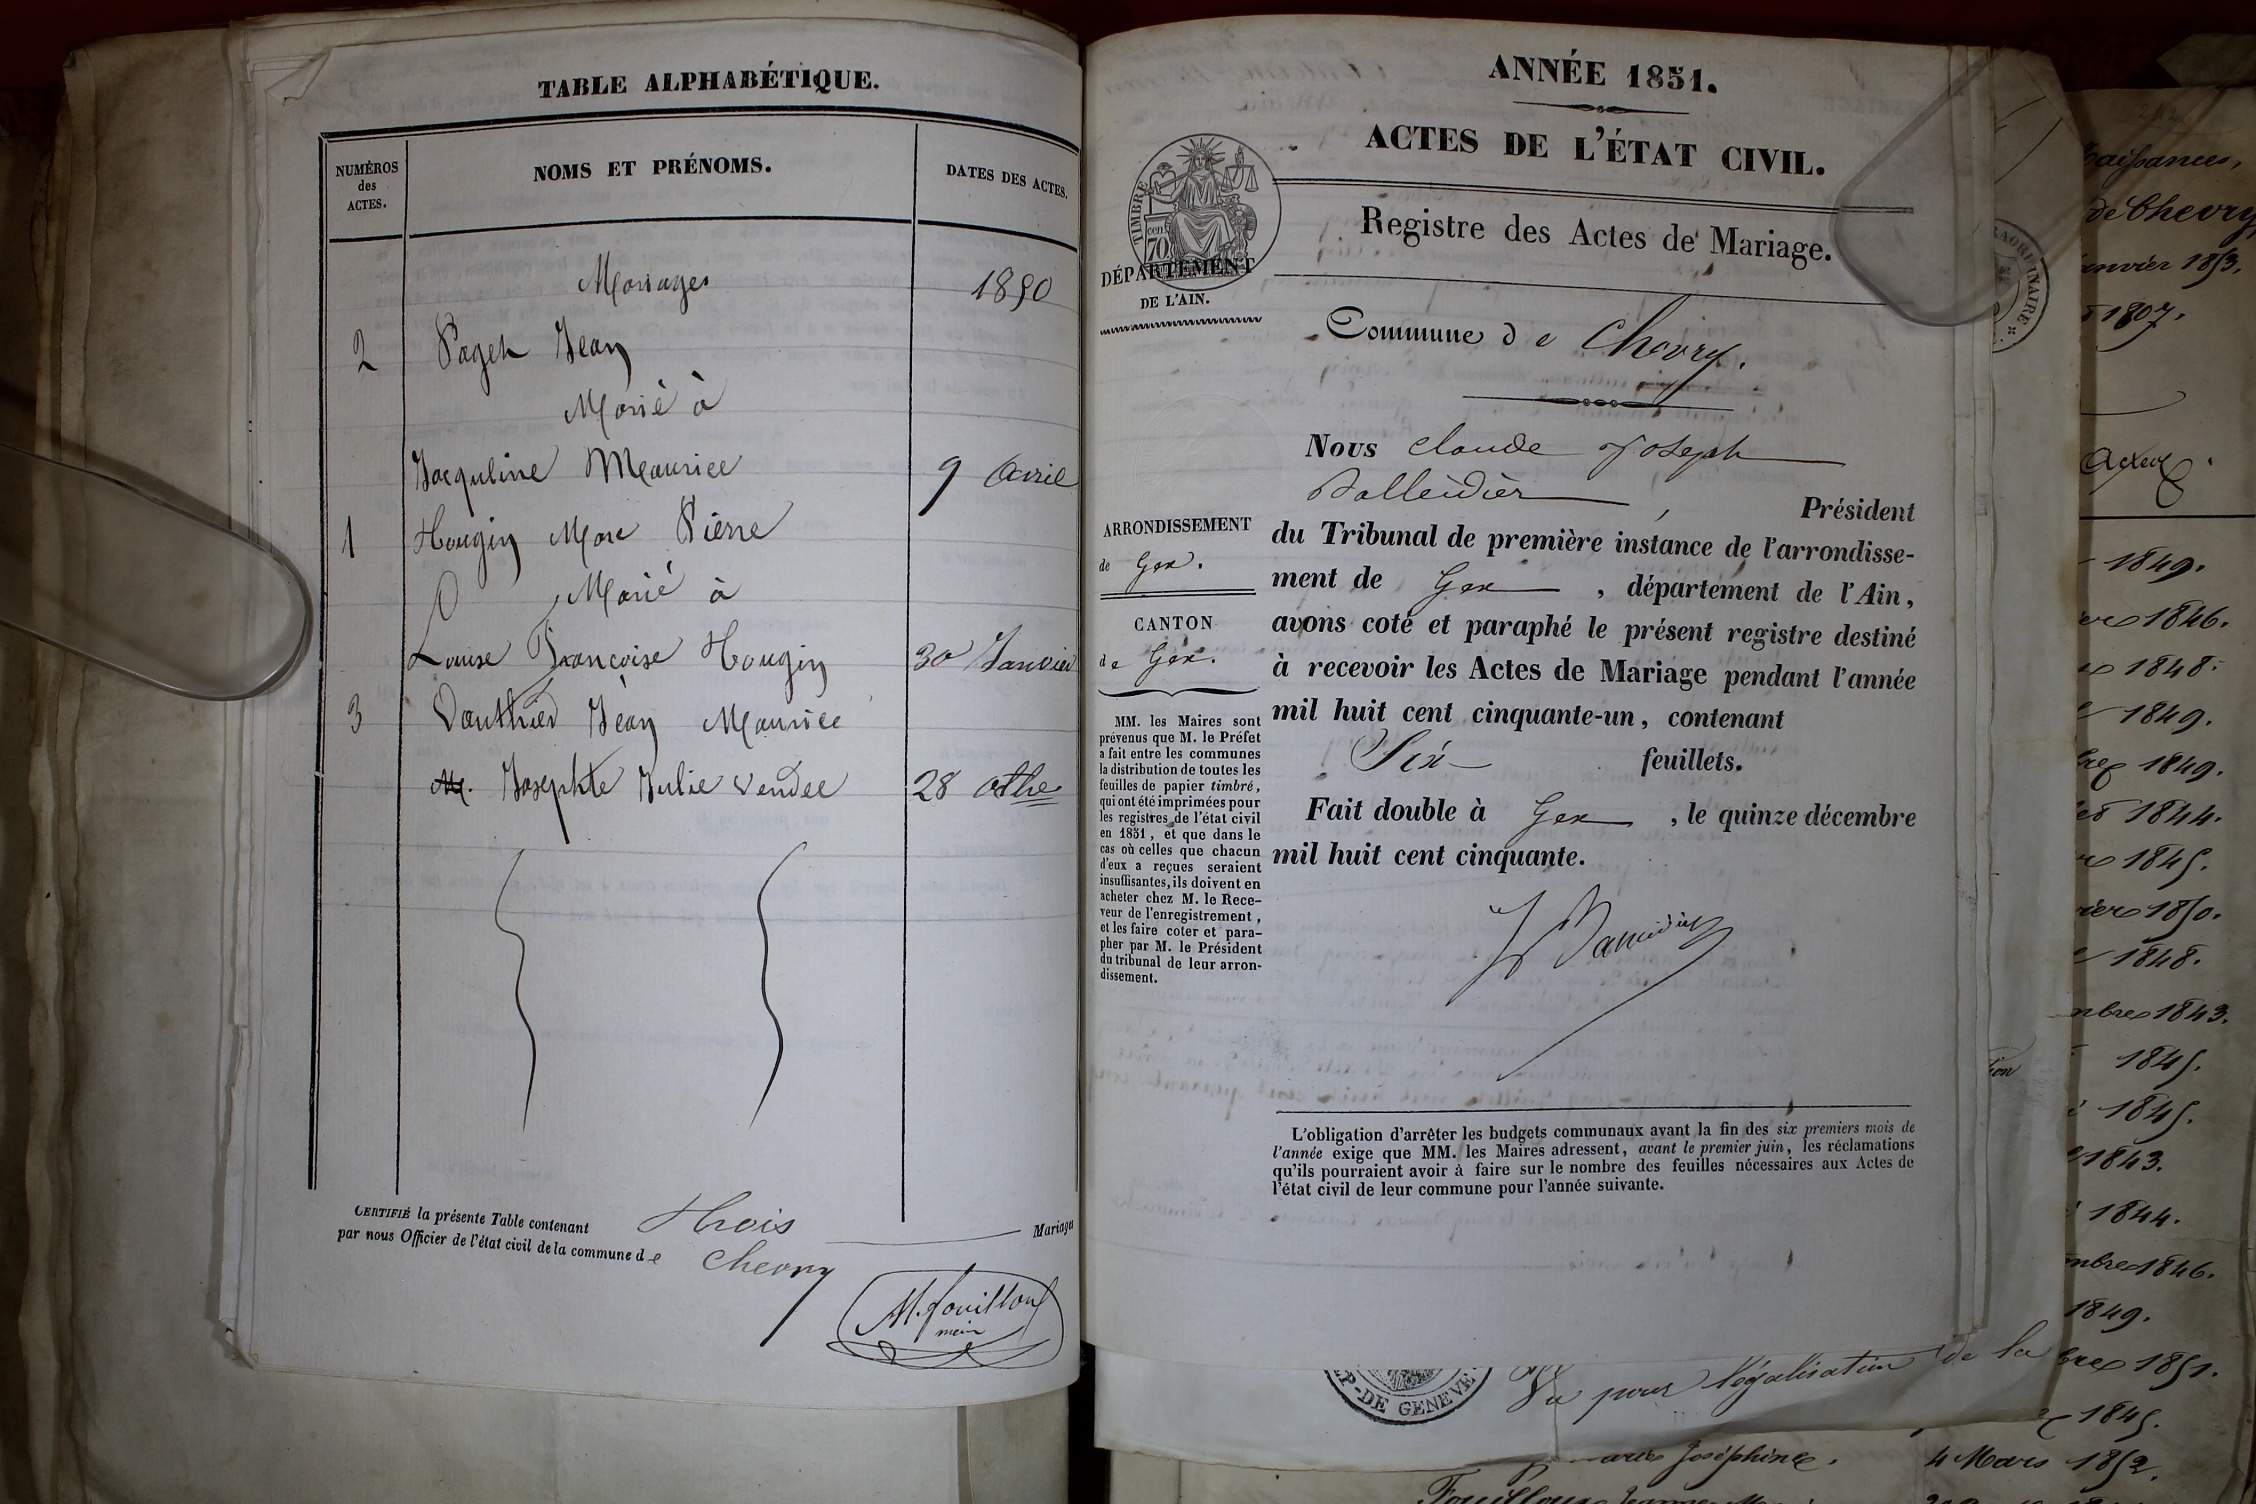 TABLE ALPHABÉTIQUE.
NUMÉROS
des
ACTES.
NOMS ET PRÉNOMS.
DATES DES ACTES.
Mariages 1850
2 Jean
Marié à
Jacquline Meaurice 9 Avril
1 Hougin Marc Pierre
Marié à
Louise Françoise Hougin 30 Janvier
3 Vauthier Jean Maurice
M. Josephte Julie Vendee 28 8bre
CERTIFIÉ la présente Table contenant Trois Mariages
par nous Officier de l'état civil de la commune de Chevry
M. fouilloux
maire
ANNÉE 1851.
ACTES DE L'ÉTAT CIVIL.
TIMBRE
cen
70
DÉPARTEMENT
DE L'AIN.
Registre des Actes de Mariage.
Commune de Chevry.
Nous Claude Joseph
Balleidier, Président
du Tribunal de première instance de l'arrondisse-
ment de Gex, département de l'Ain,
avons coté et paraphé le présent registre destiné
à recevoir les Actes de Mariage pendant l'année
mil huit cent cinquante-un, contenant
Six feuillets.
Fait double à Gex, le quinze décembre
mil huit cent cinquante.
ARRONDISSEMENT
de Gex.
CANTON
de Gex.
MM. les Maires sont
prévenus que M. le Préfet
a fait entre les communes
la distribution de toutes les
feuilles de papier timbré,
qui ont été imprimées pour
les registres de l'état civil
en 1851, et que dans le
cas où celles que chacun
d'eux a reçues seraient
insuffisantes, ils doivent en
acheter chez M. le Rece-
veur de l'enregistrement,
et les faire coter et para-
pher par M. le Président
du tribunal de leur arron-
dissement.
L'obligation d'arrêter les budgets communaux avant la fin des six premiers mois de
l'année exige que MM. les Maires adressent, avant le premier juin, les réclamations
qu'ils pourraient avoir à faire sur le nombre des feuilles nécessaires aux Actes de
l'état civil de leur commune pour l'année suivante.
DE GENEVE
Vu pour légalisation de la
de Chevry
1853.
1807.
1849.
1846.
1848.
1849.
1849.
1844.
1845.
1850.
1848.
1843.
1845.
1845.
1843.
1844.
1846.
1849.
1851.
1845.
Joséphine. 4 Mars 1852.